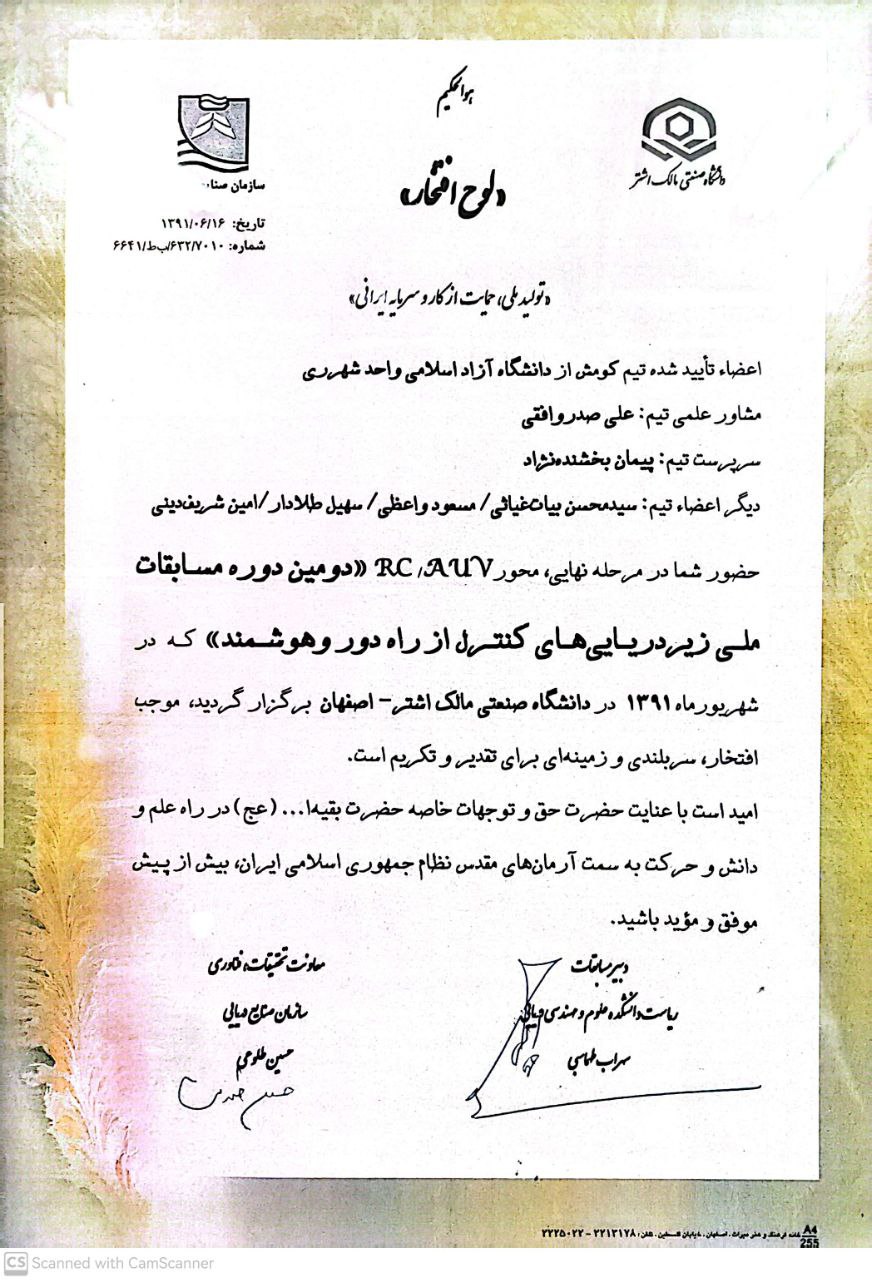 هوالحکیم
دانشگاه صنعتی مالک اشتر
سازمان صنا
«لوح افتخار»
تاریخ: ۱۳۹۱/۰۶/۱۶
شماره: ۶۳۲/۷۰۱۰/ب‌ط/۶۶۴۱
«تولید ملی، حمایت از کار و سرمایه ایرانی»
اعضاء تأیید شده تیم کومش از دانشگاه آزاد اسلامی واحد شهرری
مشاور علمی تیم: علی صدروافقی
سرپرست تیم: پیمان بخشنده‌نژاد
دیگر اعضاء تیم: سیدمحسن بیات‌غیاثی/ مسعود واعظی/ سهیل طلادار/امین شریف‌دینی
حضور شما در مرحله نهایی، محور RC,AUV «دومین دوره مسابقات
ملی زیردریایی‌های کنترل از راه دور وهوشمند» که در
شهریورماه ۱۳۹۱ در دانشگاه صنعتی مالک اشتر- اصفهان برگزار گردید، موجب
افتخار، سربلندی و زمینه‌ای برای تقدیر و تکریم است.
امید است با عنایت حضرت حق و توجهات خاصه حضرت بقیه‌ا... (عج) در راه علم و
دانش و حرکت به سمت آرمان‌های مقدس نظام جمهوری اسلامی ایران، بیش از پیش
موفق و مؤید باشید.
دبیر مسابقات
ریاست دانشکده علوم و مهندسی دریایی
سهراب طهماسبی
معاونت تحقیقات، فناوری
سازمان صنایع دریایی
حسین طلوعی
A4 خانه فرهنگ و هنر میراث. اصفهان. خیابان فلسطین. تلفن: ۲۲۱۳۱۷۸ - ۲۲۲۵۰۲۲
255
CS Scanned with CamScanner